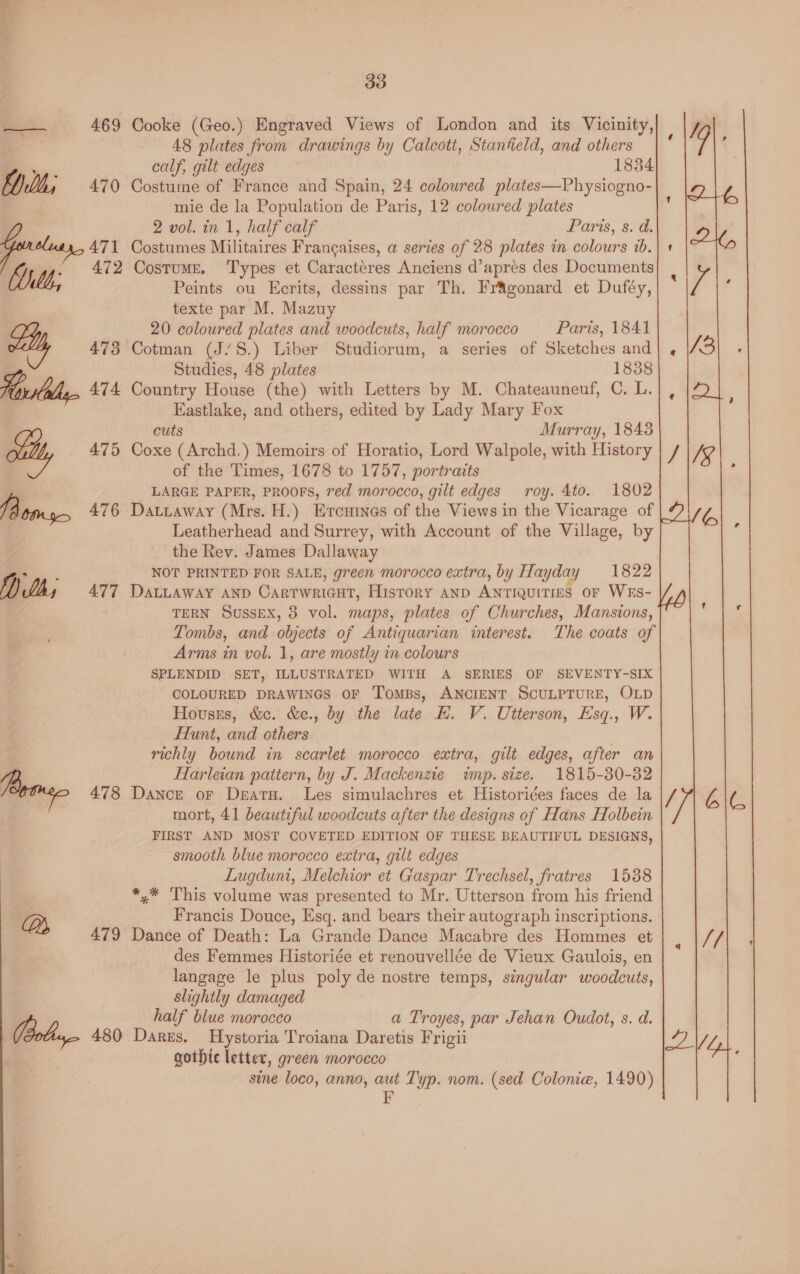 33
469 Cooke (Geo.) Engraved Views of London and its Vicinity, , 19 .
48 plates from drawings by Calcott, Stanfield, and others
calf, gilt edges 1834
Wills 470 Costume of France and Spain, 24 coloured plates—Physiogno- , 2 6
mie de la Population de Paris, 12 coloured plates
2 vol. in 1, half calf Paris, s. d.
471 Costumes Militaires Françaises, a series of 28 plates in colours ib. 2 6
Wills 472 Costume. Types et Caractères Anciens d'après des Documents , 7 .
Peints ou Ecrits, dessins par Th. Fragonard et Duféy,
texte par M. Mazuy
20 coloured plates and woodcuts, half morocco Paris, 1841
Lilly 473 Cotman (J. S.) Liber Studiorum, a series of Sketches and , 13 .
Studies, 48 plates 1838
474 Country House (the) with Letters by M. Chateauneuf, C. L. , 2 ,
Eastlake, and others, edited by Lady Mary Fox
cuts Murray, 1843
Lilly 475 Coxe (Archd.) Memoirs of Horatio, Lord Walpole, with History 1 18 .
of the Times, 1678 to 1757, portraits
LARGE PAPER, PROOFS, red morocco, gilt edges roy. 4to. 1802
Boone 476 Dallaway (Mrs. H.) Etchings of the Views in the Vicarage of 2 16 .
Leatherhead and Surrey, with Account of the Village, by
the Rev. James Dallaway
NOT PRINTED FOR SALE, green morocco extra, by Hayday 1822
Wills 477 Dallaway and Cartwright, History and Antiquities of Wes- 40 . .
tern Sussex, 3 vol. maps, plates of Churches, Mansions,
Tombs, and objects of Antiquarian interest. The coats of
Arms in vol. 1, are mostly in colours
SPLENDID SET, ILLUSTRATED WITH A SERIES OF SEVENTY-SIX
COLOURED DRAWINGS OF Tombs, Ancient Sculpture, Old
Houses, &c. &c., by the late E. V. Utterson, Esq., W.
Hunt, and others
richly bound in scarlet morocco extra, gilt edges, after an
Harleian pattern, by J. Mackenzie imp. size. 1815-30-32
Boone 478 Dance of Death. Les simulachres et Historiées faces de la 17 6 6
mort, 41 beautiful woodcuts after the designs of Hans Holbein
FIRST AND MOST COVETED EDITION OF THESE BEAUTIFUL DESIGNS,
smooth blue morocco extra, gilt edges
Lugduni, Melchior et Gaspar Trechsel, fratres 1538
*** This volume was presented to Mr. Utterson from his friend
Francis Douce, Esq. and bears their autograph inscriptions.
479 Dance of Death: La Grande Dance Macabre des Hommes et , 11
des Femmes Historiée et renouvellée de Vieux Gaulois, en
langage le plus poly de nostre temps, singular woodcuts,
slightly damaged
half blue morocco a Troyes, par Jehan Oudot, s. d.
480 Dares. Hystoria Troiana Daretis Frigii 2 14 .
gothic letter, green morocco
sine loco, anno, aut Typ. nom. (sed Coloniæ, 1490)
F